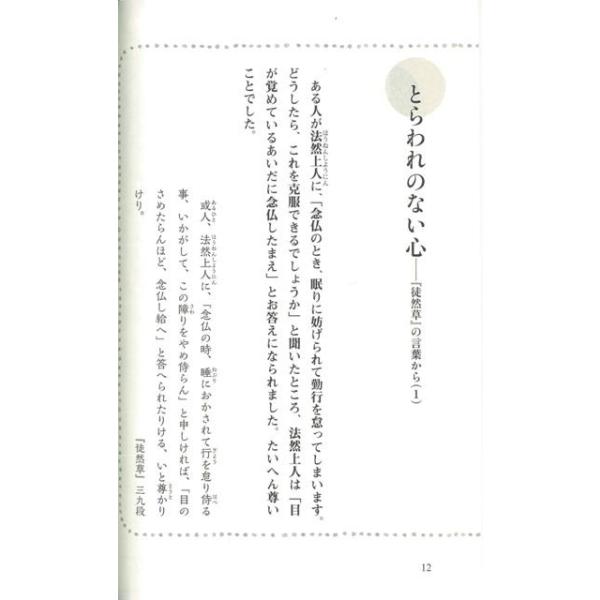 とらわれのない心――『徒然草』の言葉から(1)
ある人が法然上人に、「念仏のとき、眠りに妨げられて勤行を怠ってしまいます。
どうしたら、これを克服できるでしょうか」と聞いたところ、法然上人は「目
が覚めているあいだに念仏したまえ」とお答えになられました。たいへん尊い
ことでした。
或人、法然上人に、「念仏の時、睡におかされて行を怠り侍る
事、いかがして、この障りをやめ侍らん」と申しければ、「目の
さめたらんほど、念仏し給へ」と答へられたりける、いと尊かり
けり。
『徒然草』三九段
12